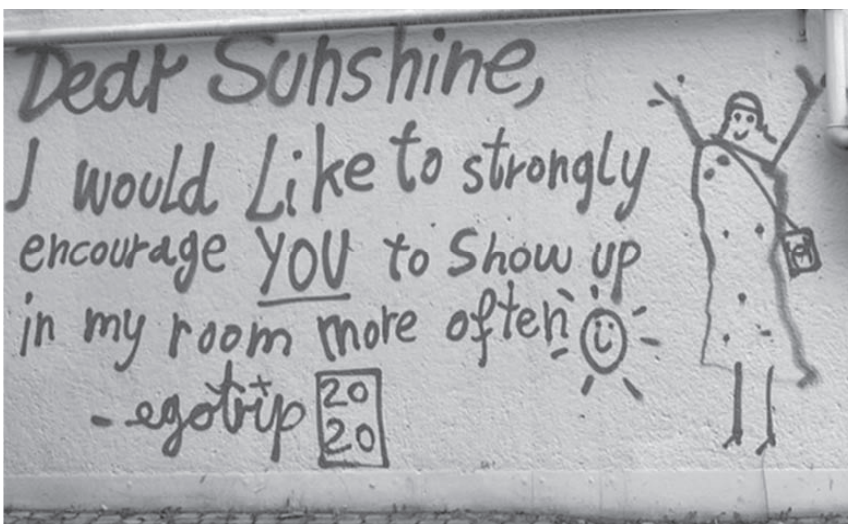 Dear Sunshine,
I would Like to strongly
encourage YOU to Show up
in my room more often
- egotrip 20
20